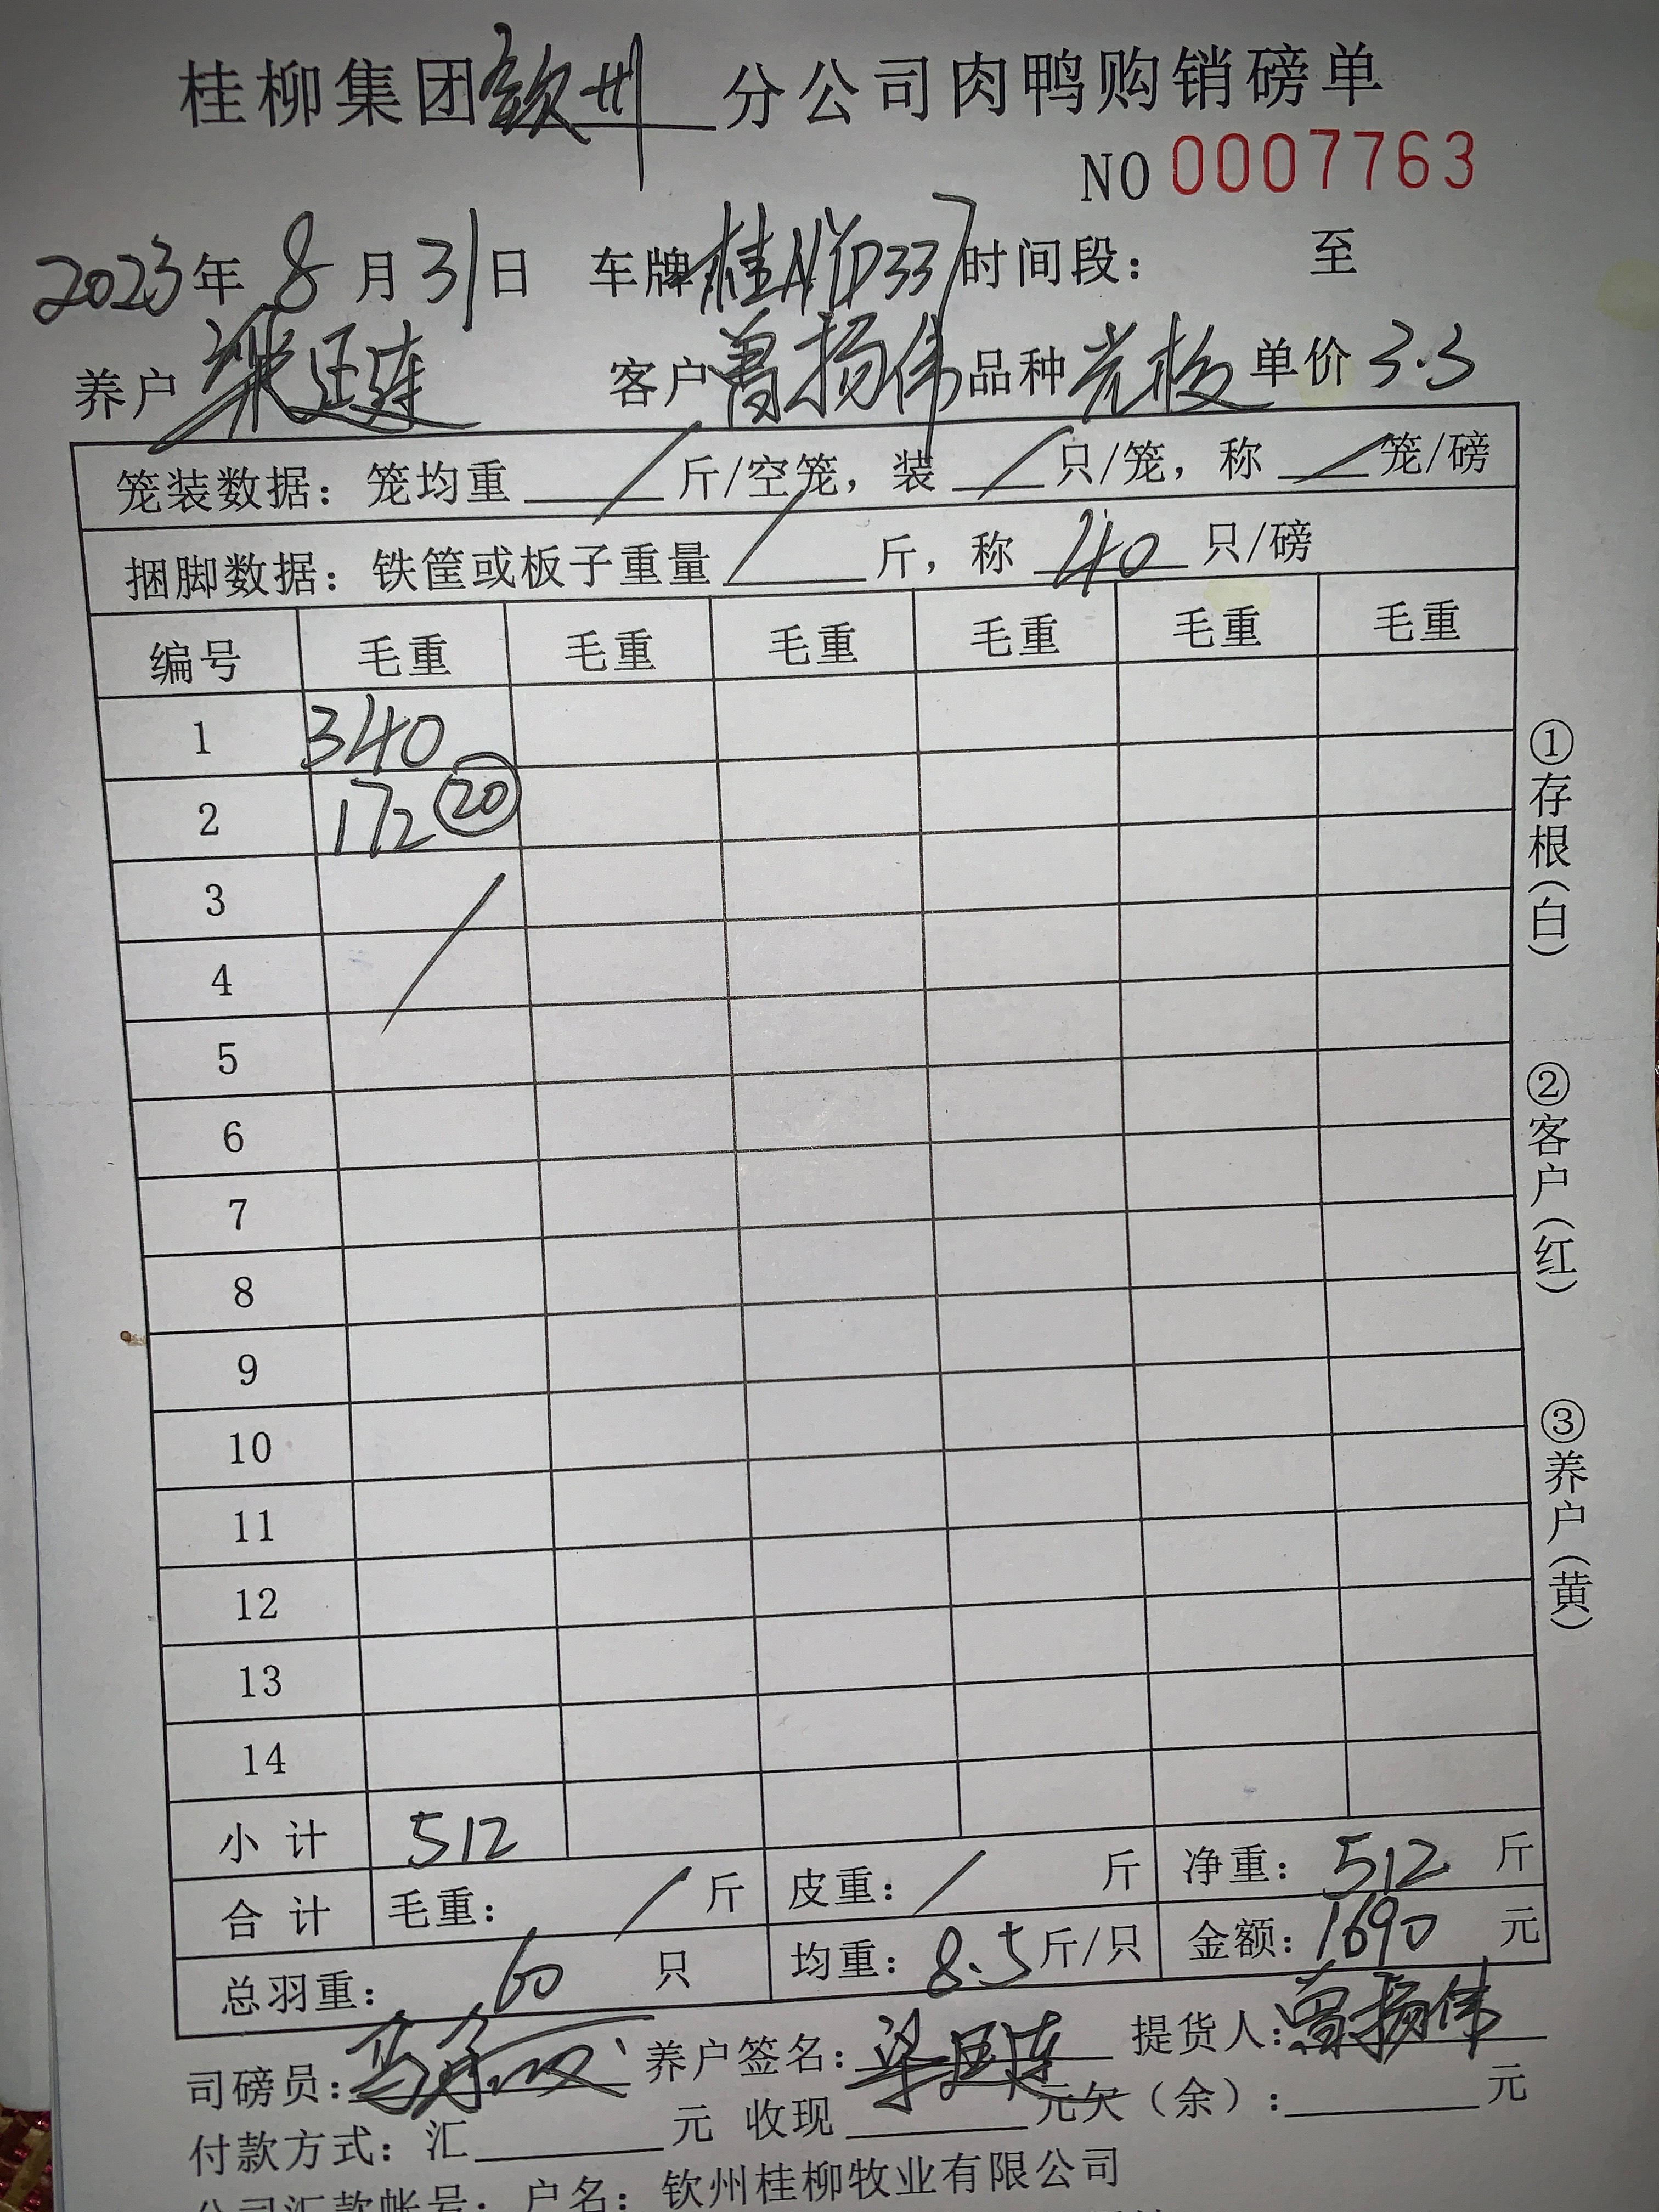 桂柳集团钦州分公司肉鸭购销磅单
NO 0007763
2023年8月31日 车牌桂NYD337时间段： 至
养户梁廷连 客户曾扬伟品种 单价3.3
笼装数据：笼均重 / 斤/空笼，装 / 只/笼，称 / 笼/磅
捆脚数据：铁筐或板子重量 / 斤，称 40 只/磅
编号 毛重 毛重 毛重 毛重 毛重 毛重
1 340
2 172 ⑳
3 /
4
5
6
7
8
9
10
11
12
13
14
小计 512
合计 毛重： / 斤 皮重： / 斤 净重：512 斤
总羽重： 60 只 均重：8.5斤/只 金额：1690 元
司磅员： 养户签名：梁廷连 提货人：曾扬伟
付款方式：汇 元 收现 元欠（余）： 元
公司汇款帐号：户名：钦州桂柳牧业有限公司
①存根（白）
②客户（红）
③养户（黄）